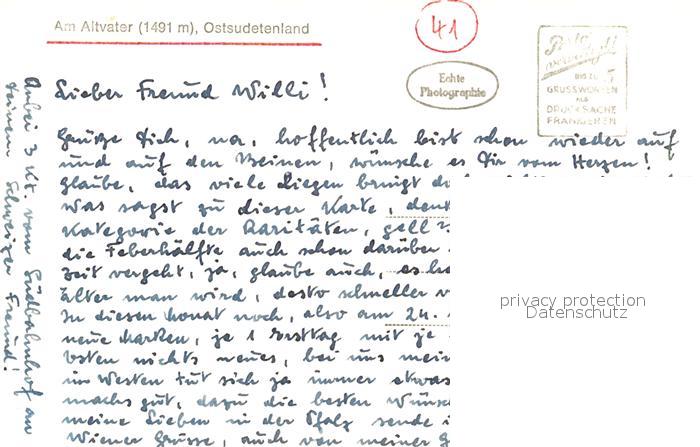 Am Altvater (1491 m), Ostsudetenland
41
Echte
Photographie
BIS ZU 5
GRUSSWORTEN
ALS
DRUCKSACHE
FRANKIEREN
Lieber Freund Willi!
Grüße Dich, na, hoffentlich bist schon wieder auf
und auf den Beinen, wünsche es Dir vom Herzen!
glaube, das viele Liegen bringt
was sagst zu dieser Karte,
Kategorie der Raritäten, gell
die Feberhälfte auch schon darüber
Zeit vergeht, ja, glaube auch,
älter man wird, desto schneller
In diesem Monat noch, also am 24.
neue Marken, je 1 Ersttag mit je
Osten nichts neues, bei uns
im Westen tut sich ja immer etwas
machs gut, dazu die besten
meine Lieben in der Pfalz sende
Wiener Grüsse, auch von meiner
Anbei 3 Kt. vom Südbahnhof an
Deinen Schweizer Freund!
privacy protection
Datenschutz